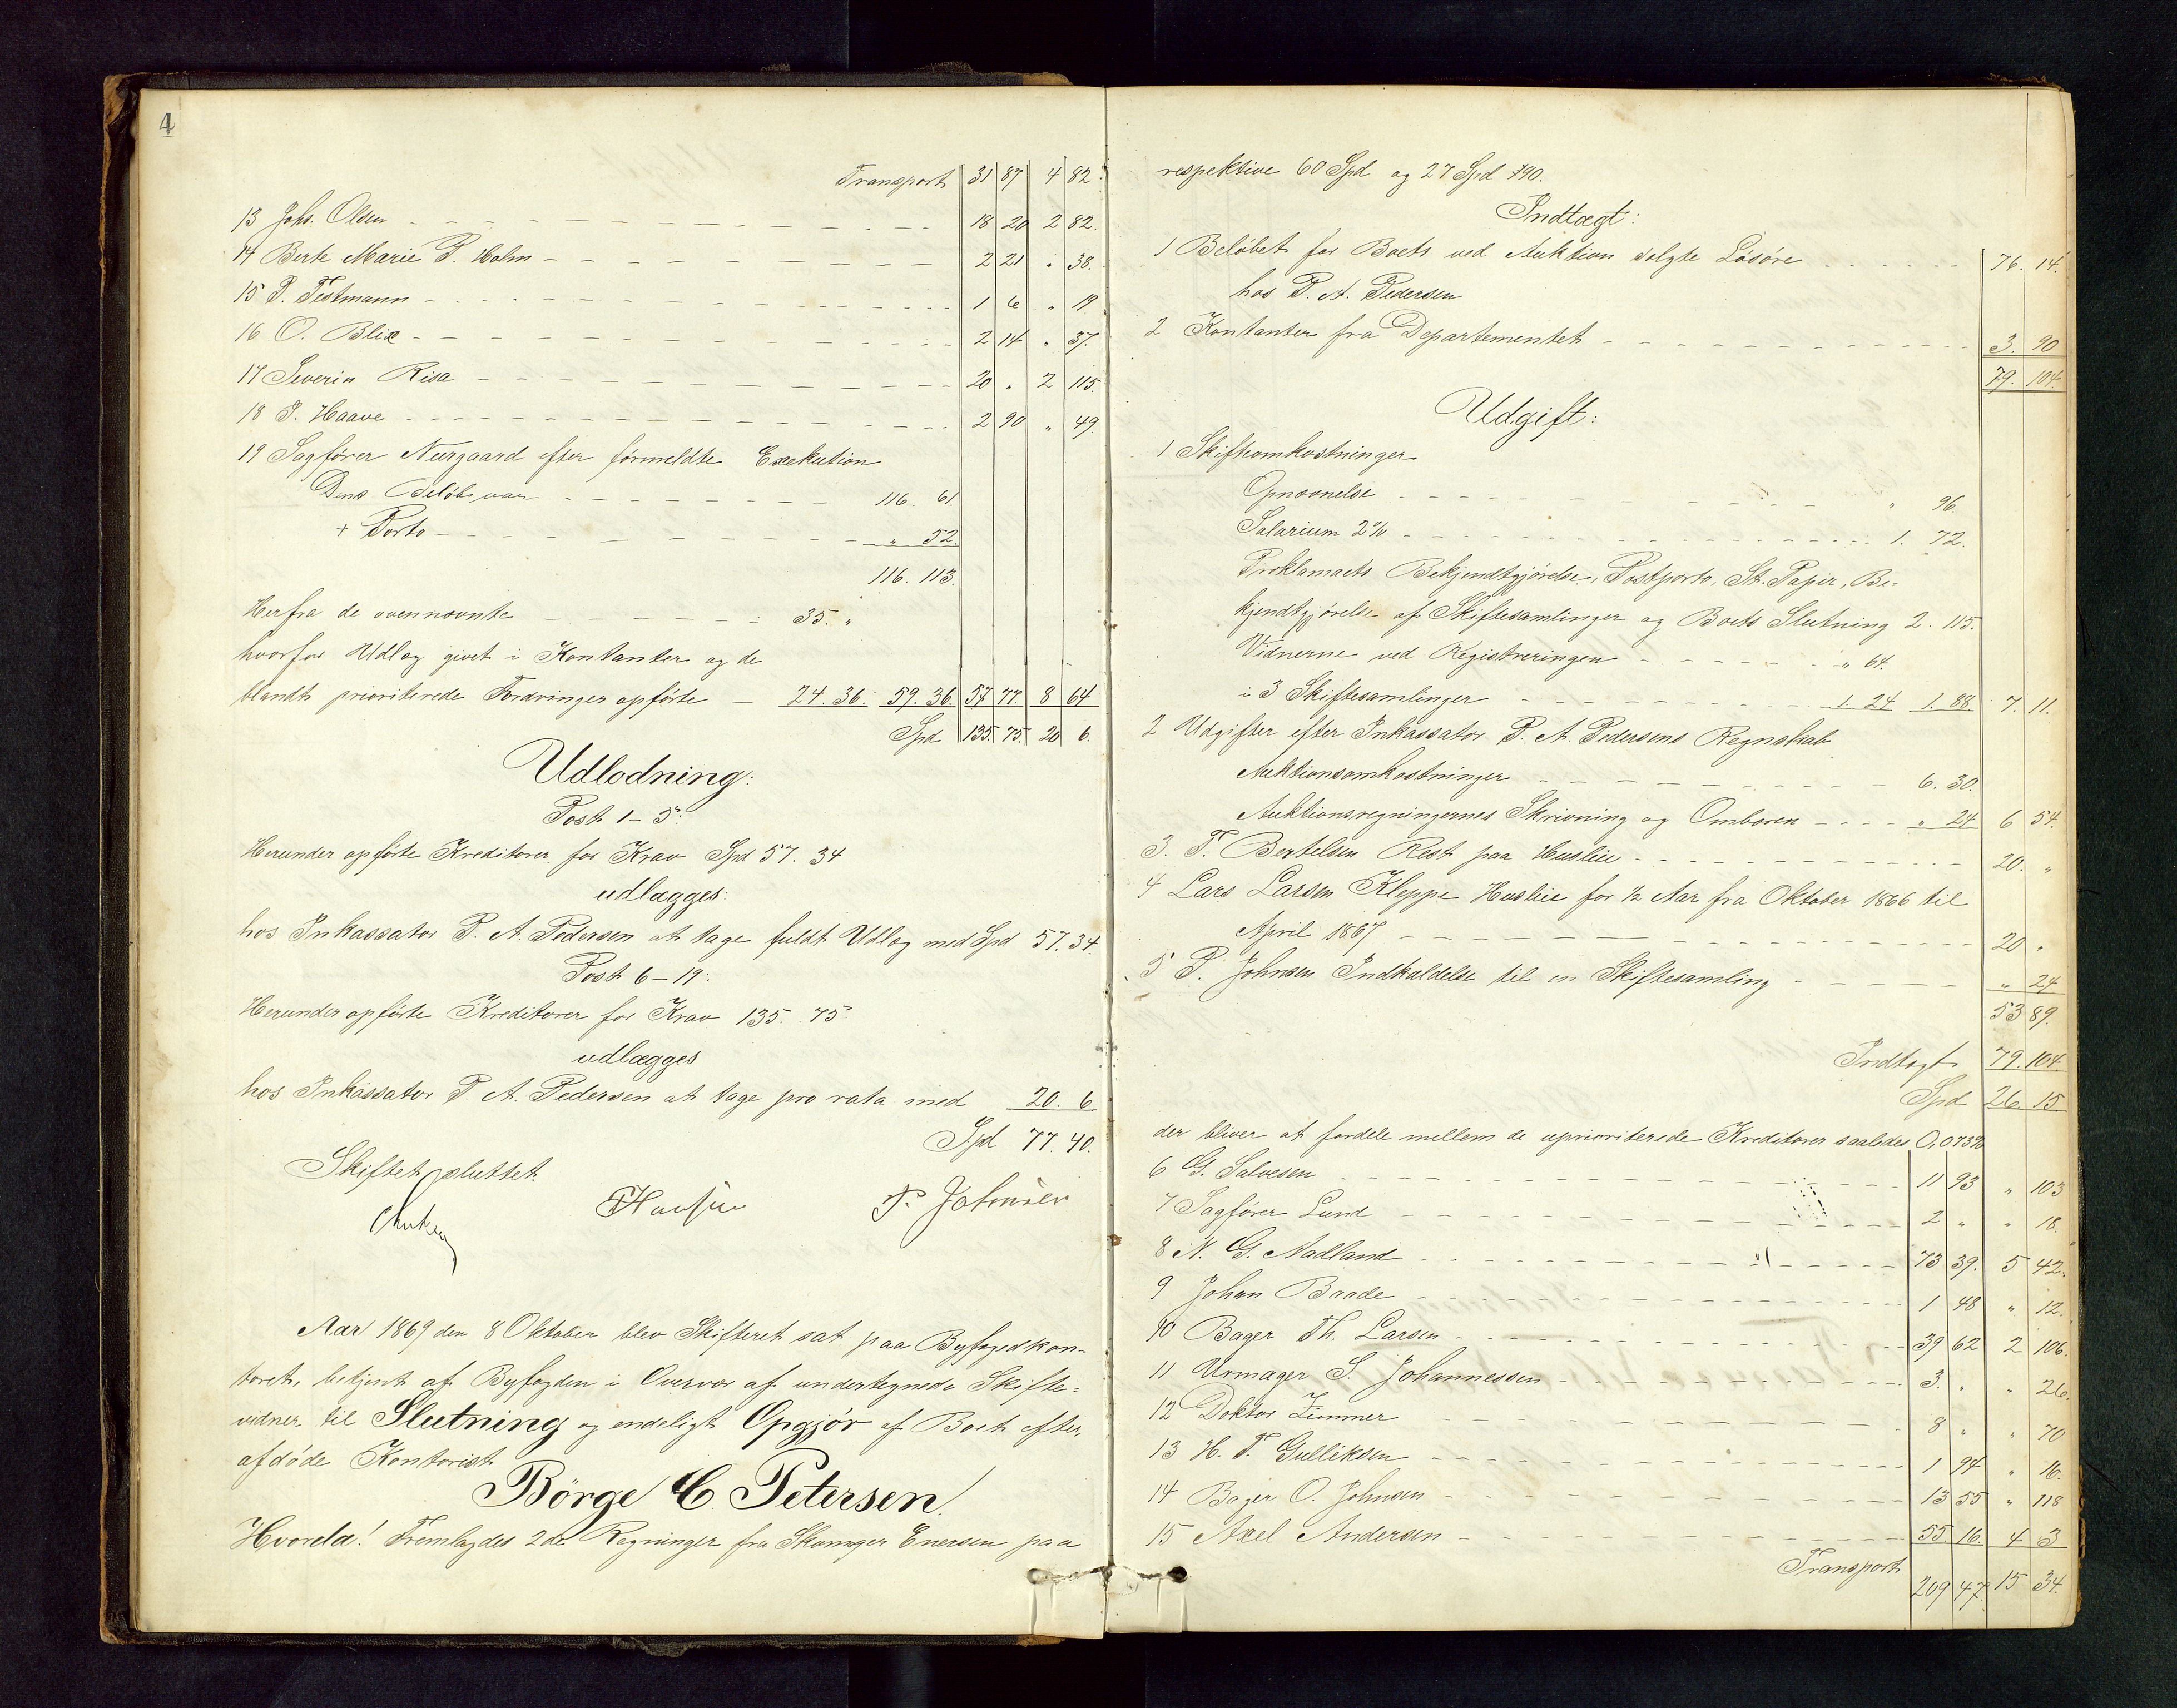 4
Transport 31 87 4 82.
13 Johs. Olsen 18 20 2 82.
14 Berte Marie P. Holm 2 21 " 38.
15 P. Testmann 1 6 " 19
16 O. Blix 2 14 " 37.
17 Severin Risa 20 " 2 115.
18 P. Haave 2 90 " 49.
19 Sagfører Nurgaard efter førmeldte Exekution
Dens Beløb var 116. 61.
+ Porto " 52.
116. 113.
Herfra de ovennævnte 35. "
hvorfor Udlæg givet i Kontanter og de
blandt prioriterede Fordringer opførte 24. 36. 59. 36. 57 77 8 64
Spd 135. 75. 20 6.
Udlodning:
Post 1-5:
Herunder opførte Kreditorer for Krav Spd 57. 34
udlægges:
hos Inkassator P. A. Pedersen at tage fuldt Udlæg med Spd 57. 34.
Post 6-19:
Herunder opførte Kreditorer for Krav 135. 75.
udlægges
hos Inkassator P. A. Pedersen at tage pro rata med 20. 6
Spd 77. 40.
Skiftet sluttet.
Hansen P. Johnsen
Aar 1869 den 8 Oktober blev Skifteret sat paa Byfogedkon-
toret, betjent af Byfogden i Overvær af undertegnede Skifte-
vidner til Slutning og endeligt Opgjör af Boet efter
afdöde Kontorist
Börge C. Petersen.
Hvorda! Fremlagdes 2de Regninger fra Skomager Enersen paa
respektive 60 Spd og 27 Spd 90.
Indtægt:
1 Beløbet for Boets ved Auktion solgte Løsøre 76. 14.
hos P. A. Pedersen
2 Kontanter fra Departementet 3. 90
79. 104.
Udgift:
1 Skifteomkostninger
Opnævnelse " 96.
Salarium 2% 1. 72.
Proklamaets Bekjendtgjørelse, Postporto, St. Papir, Be-
kjendtgjørelse af Skiftesamlinger og Boets Slutning 2. 115.
Vidnerne ved Registreringen " 64.
i 3 Skiftesamlinger 1. 24 1. 88 7. 11.
2 Udgifter efter Inkassator P. A. Pedersens Regnskab
Auktionsomkostninger 6. 30.
Auktionsregningernes Skrivning og Ombæren " 24 6 54.
3. T. Bertelsen Rest paa Husleie 20. "
4 Lars Larsen Kleppe Husleie for 1/2 Aar fra Oktober 1866 til
April 1867 20 "
5 P. Johnsen Indkaldelse til en Skiftesamling " 24
53 89.
Indtægt 79. 104
Spd 26. 15
der bliver at fordele mellem de uprioriterede Kreditorer saaledes 0,073%
6 G. Salvesen 11 93 " 103
7 Sagfører Lund 2 " " 18.
8 N. G. Aadland 73 39. 5 42.
9 Johan Baade 1 48 " 12.
10 Bager Th. Larsen 39 62 2 106.
11 Urmager S. Johannessen 3. " " 26.
12 Doktor Zimmer 8 " " 70
13 H. T. Gulliksen 1 94 " 16.
14 Bager O. Johnsen 13 55 " 118
15 Axel Andersen 55 16. 4 3
Transport 209 47 15 34.